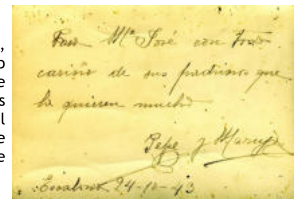 Para Mª José con todo
cariño de sus padrinos que
la quieren mucho.
Pepe y Maruja
24-10-43